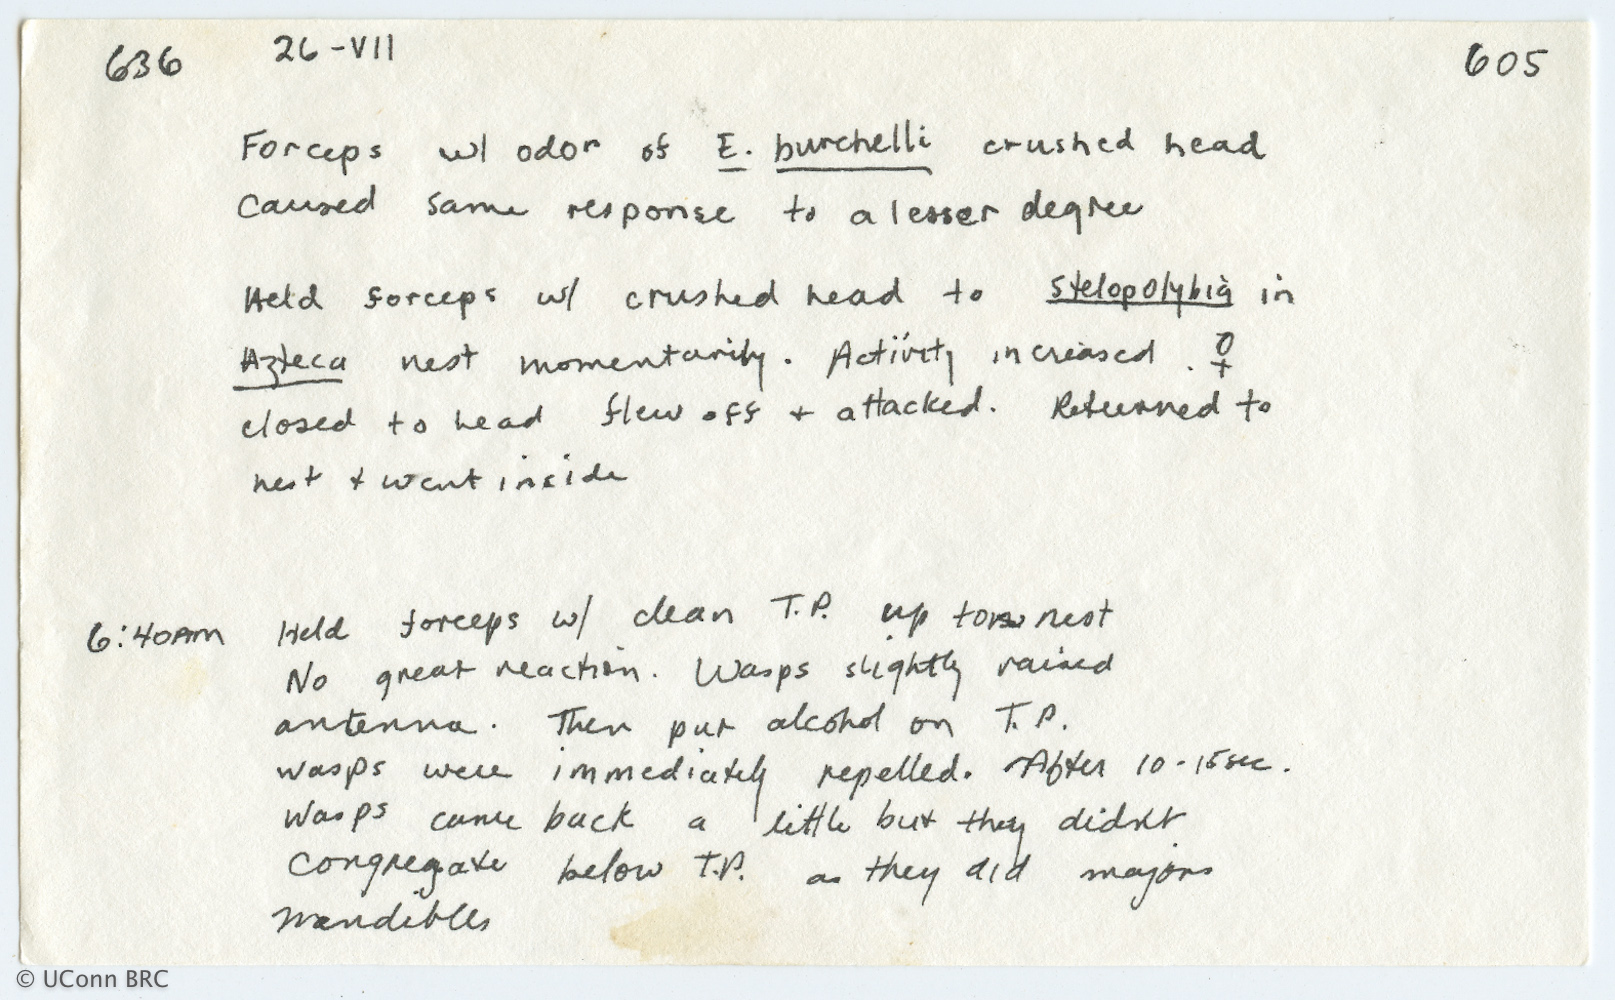 636 26-VII 605
Forceps w/ odor of E. burchelli crushed head
caused same response to a lesser degree
Held forceps w/ crushed head to Stelopolybia in
Azteca nest momentarily. Activity increased. ♀
closed to head flew off + attacked. Returned to
nest + went inside
6:40AM Held forceps w/ clean T.P. up to nest
No great reaction. Wasps slightly raised
antenna. Then put alcohol on T.P.
Wasps were immediately repelled. After 10-15sec.
Wasps came back a little but they didn't
congregate below T.P. as they did majors
mandibles
© UConn BRC